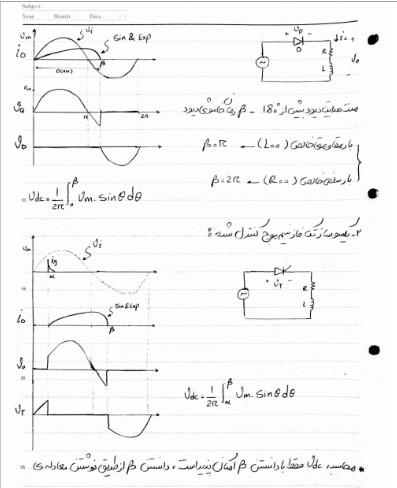 Subject :
Year Month Date
Vm Vi Sin & Exp
io
D(on) β
+ VD - i=io
D R
L Vo
Vm
Vo
π 2π
مدت هدایت دیود بیش از 180 - β زمان خاموشی دیود
VD
β=π ← (L=0) بار مقاومتی خالص
β=2π ← (R=0) بار سلفی خالص
Vdc = 1/2π ∫₀^β Vm. Sinθ dθ
2- یکسوساز تک فاز نیم موج کنترل شده :
Vm Vi
ig
α
+ VT -
R
L
io Sin&Exp
β
Vo
Vdc = 1/2π ∫_α^β Vm. Sinθ dθ
VT
* محاسبه Vdc فقط با دانستن β امکان پذیر است ، دانستن β از طریق نوشتن معادله ی